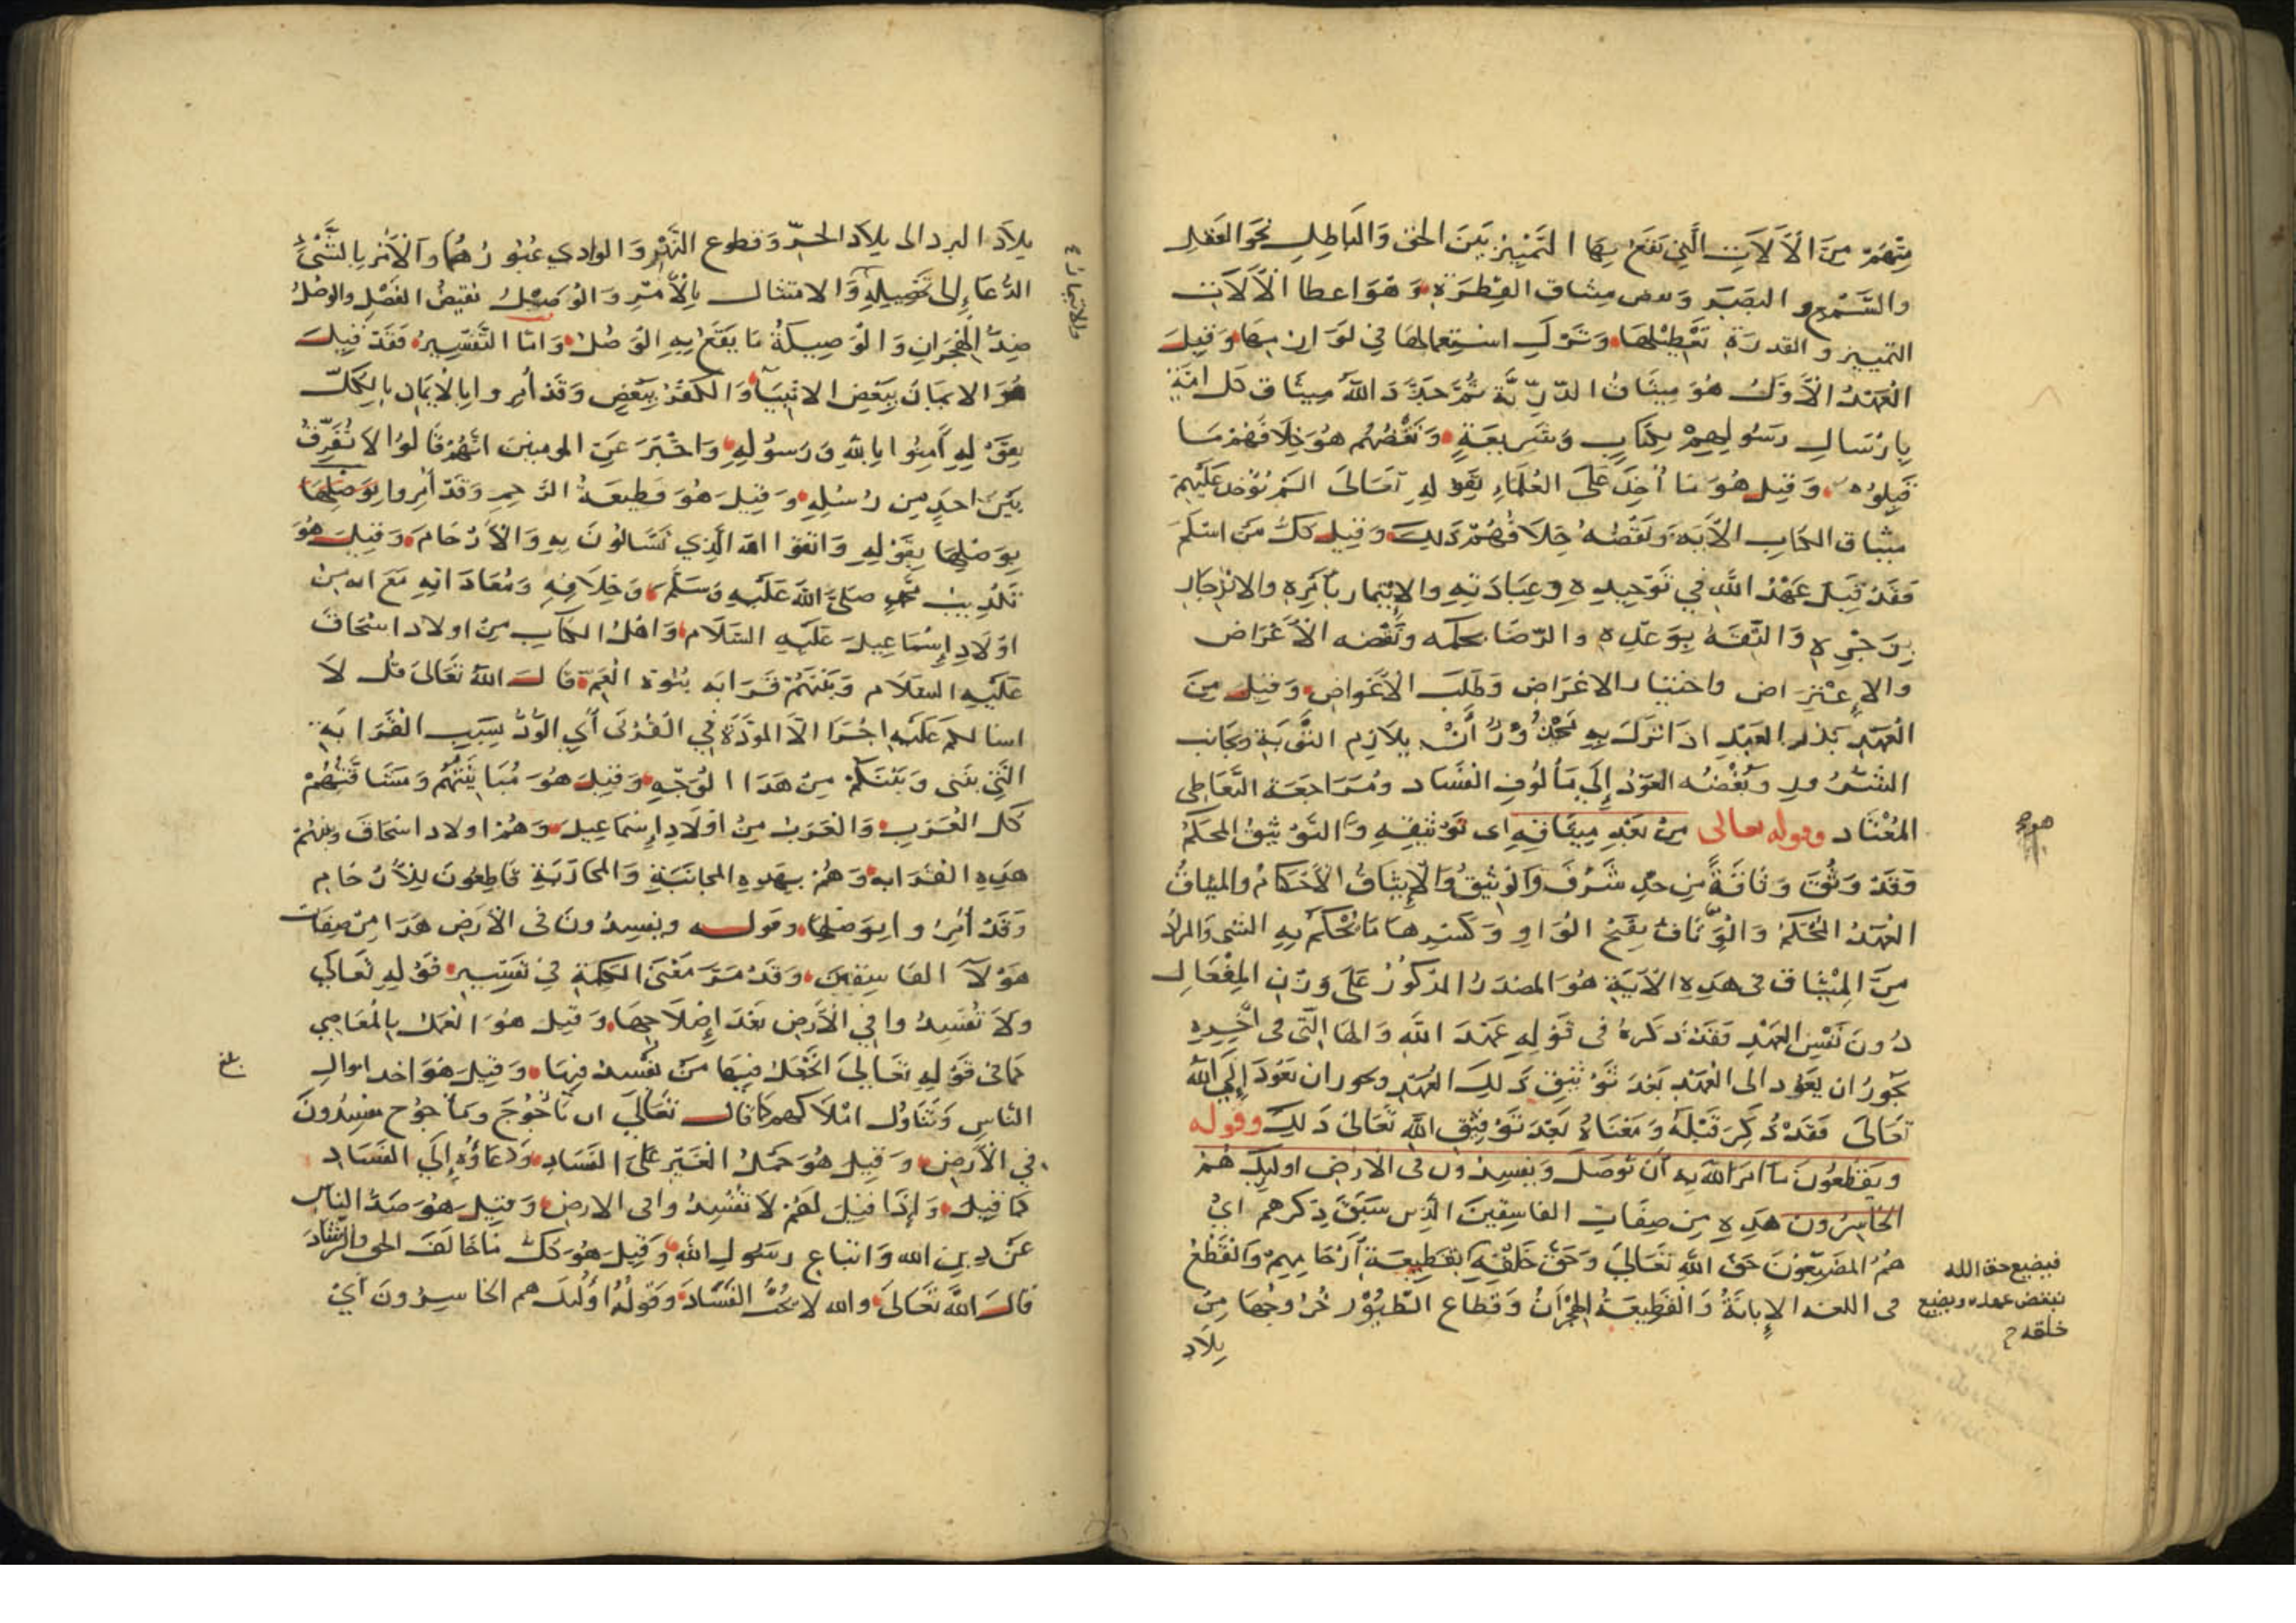 منهم من الآلات التي يقع بها التمييز بين الحق والباطل نحو العقل
والسمع والبصر ونقض ميثاق الفطرة وهو اعطا الآلات
التمييز والقدرة تعطيلها وترك استعمالها في لوازمها وقيل
العهد الأول هو ميثاق الذرية ثم جدد الله ميثاق كل امة
بارسال رسولهم بكتاب وشريعة ونقضهم هو خلافهم ما
قبلوه وقيل هو ما أخذ على العلماء بقوله تعالى الم يؤخذ عليهم
ميثاق الكتاب الآية ونقضه خلافهم ذلك وقيل كل من اسلم
فقد قبل عهد الله في توحيده وعبادته والإيتمار بأمره والانزجار
بزجره والثقة بوعده والرضا بحكمه ونقضه الأعراض
والإعتراض واختيار الاغراض وطلب الأعواض وقيل من
العهد نذر العبد اذا نزل به محذور أن يلازم التوبة ويجانب
الشرور ونقضه العود إلى مألوف الفساد ومراجعة التعاطي
المعتاد وقوله تعالى من بعد ميثاقه اى توثيقه والتوثيق المحكم
وقد وثق وثاقة من حد شرف والوثيق والإيثاق الأحكام والميثاق
العهد المحكم والوثاق بفتح الواو وكسرها ما يحكم به الشى والمراد
من الميثاق فى هذه الآية هو المصدر المذكور على وزن المفعال
دون نفس العهد فقد ذكره فى قوله عهد الله والها التى فى آخره
يجوز ان يعود الى العهد بعد توثيق ذلك العهد ويجوز ان يعود إلى الله
تعالى فقد ذكر قبله ومعناه بعد توثيق الله تعالى ذلك وقوله
ويقطعون ما امر الله به أن يوصل ويفسدون فى الارض اوليك هم
الخاسرون هذه من صفات الفاسقين الذين سبق ذكرهم اى
هم المضيعون حق الله تعالى وحق خلقه بقطيعة أرحامهم والقطع
فى اللغة الإبانة والقطيعة الهجران وقطاع الطيور خروجها من
بلاد
فيضيع حق الله
بنقض عهده ويضيع
خلقه
بلاد البرد الى بلاد الحر وقطوع النهر والوادي عبورهما والأمر بالشئ
الدعا إلى تحصيله والامتثال بالأمر والوصل نقيض الفصل والوصل
ضد الهجران والوصيلة ما يقع به الوصل واما التفسير فقد قيل
هو الايمان ببعض الانبيآ والكفر ببعض وقد أمروا بالايمان بالكل
بقوله آمنوا بالله ورسوله واخبر عن المومنين انهم قالوا لا نفرق
بين احد من رسله وقيل هو قطيعة الرحم وقد أمروا بوصلها
بوصلها بقوله واتقوا الله الذي تسالون به والأرحام وقيل هو
تكذيب محمد صلى الله عليه وسلم وخلافه ومعاداته مع انه من
اولاد إسماعيل عليه السلام واهل الكتاب من اولاد اسحاق
عليه السلام وبينهم قرابه بنوة العم قال الله تعالى قل لا
اسالكم عليه اجرا الا المودة في القربى أي الود بسبب القرابة
التي بينى وبينكم من هذا الوجه وقيل هو مباينتهم ومشاقتهم
كل العرب والعرب من أولاد إسماعيل وهم اولاد اسحاق وبينهم
هذه القرابه وهم بهذه المجانبة والمحاربة قاطعون للأرحام
وقد أمروا بوصلها وقوله ويفسدون فى الأرض هذا من صفات
هولآ الفاسقين وقد مر معنى الكلمة في تفسير قوله تعالى
ولا تفسدوا في الأرض بعد إصلاحها وقيل هو العمل بالمعاصي
كما فى قوله تعالى اتجعل فيها من يفسد فيها وقيل هو اخد اموال
الناس وتناول املاكهم كما قال تعالى ان ياجوج وماجوج مفسدون
في الأرض وقيل هو حمل الغير على الفساد ودعاؤه إلى الفساد
كما قيل وإذا قيل لهم لا تفسدوا فى الارض وقيل هو صد الناس
عن دين الله واتباع رسول الله وقيل هو كل ما خالف الحق والرشاد
قال الله تعالى والله لا يحب الفساد وقوله أولئك هم الخاسرون أي
بلغ